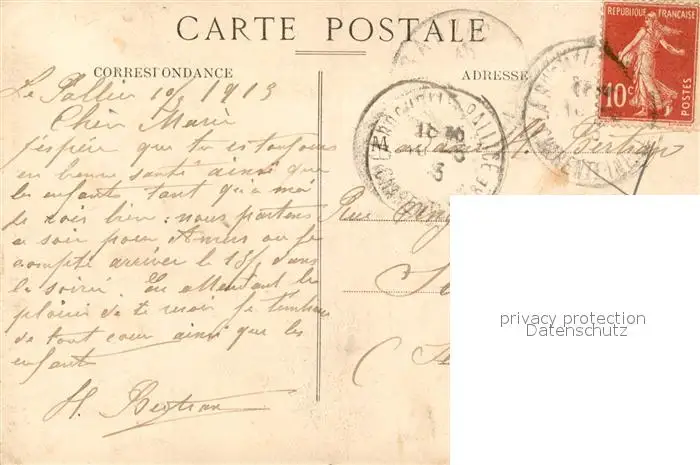 CARTE POSTALE
CORRESPONDANCE
ADRESSE
REPUBLIQUE FRANÇAISE
10c
POSTES
La Pallice 10/3/1913
Chère Marie
J'espère que tu es toujours
en bonne santé ainsi que
les enfants tant qu'a moi
je vois bien: nous partons
ce soir pour
compte arriver le 13/3 dans
la soirée. En attendant le
plaisir de te revoir je
de tout cœur ainsi que les
enfants
H. Bertran
LA ROCHELLE-PALLICE
CHARENTE INF
18
3
Madame H. Bertran
Rue
privacy protection
Datenschutz